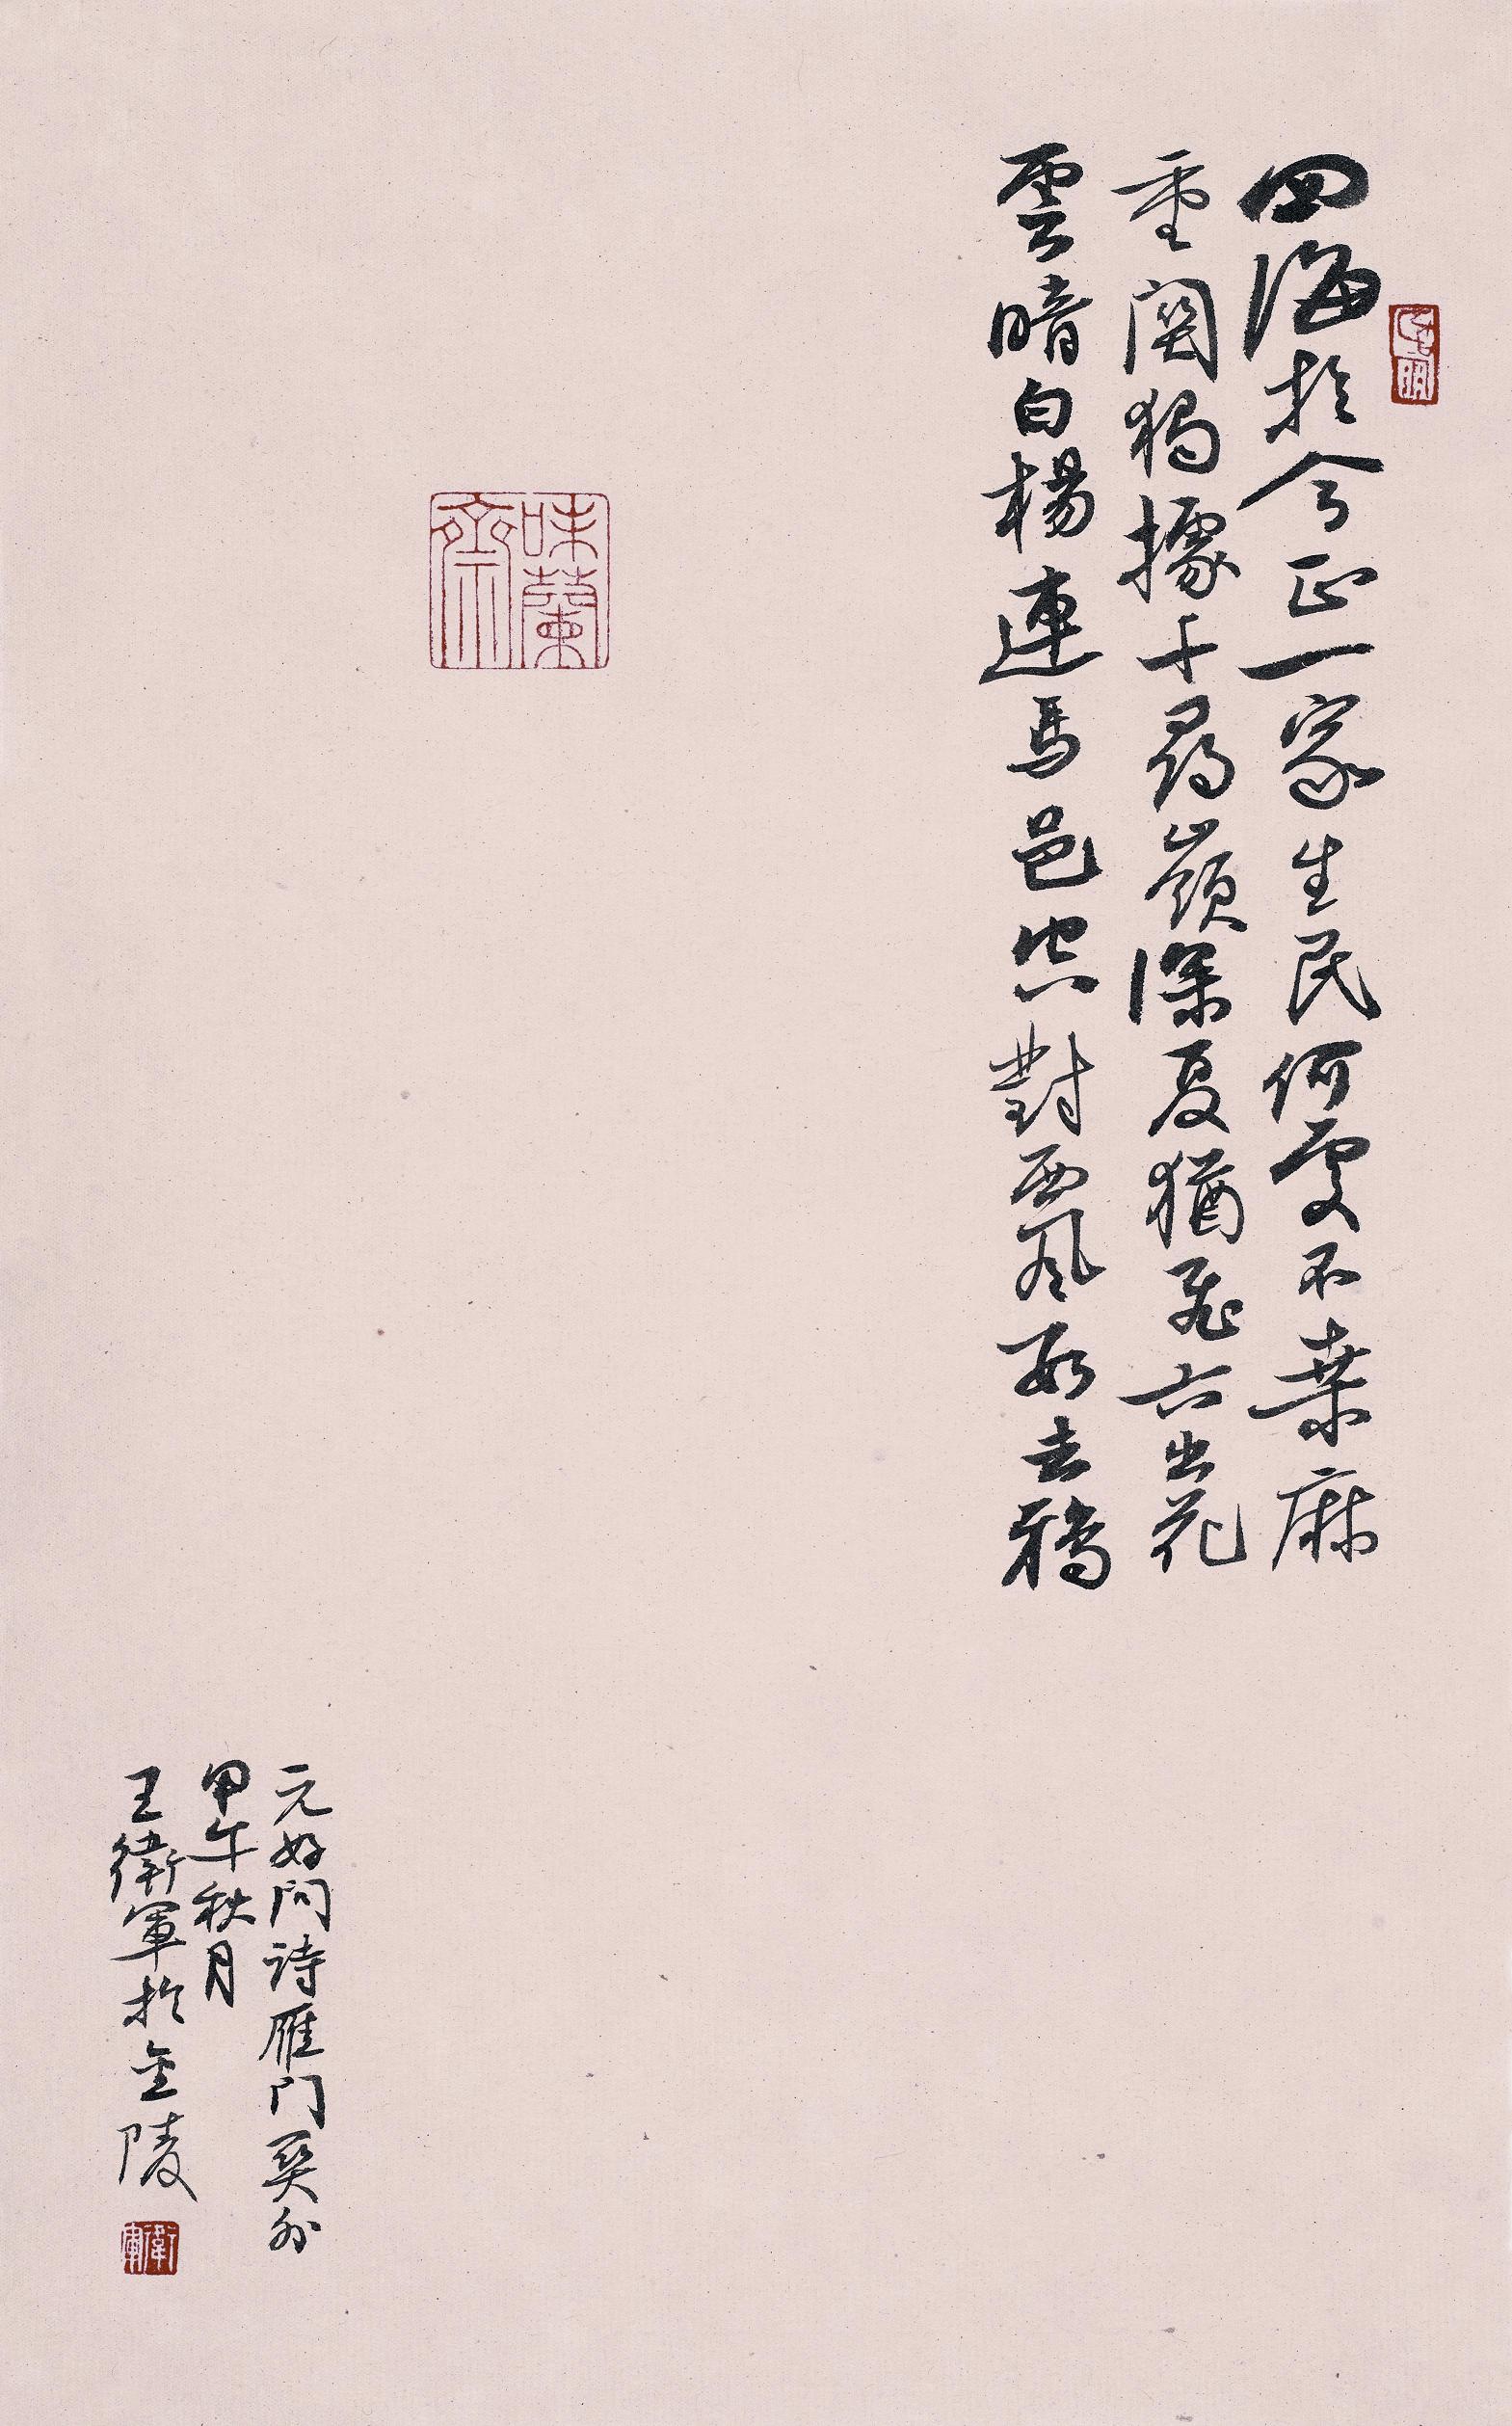 四海於今正一家生民何處不桑麻
重關獨據千尋嶺深夏猶飛六出花
雲暗白楊連馬邑空對西風數去鴉
味蘭齋
元好问诗雁门關外
甲午秋月
王衛軍於金陵
衛軍